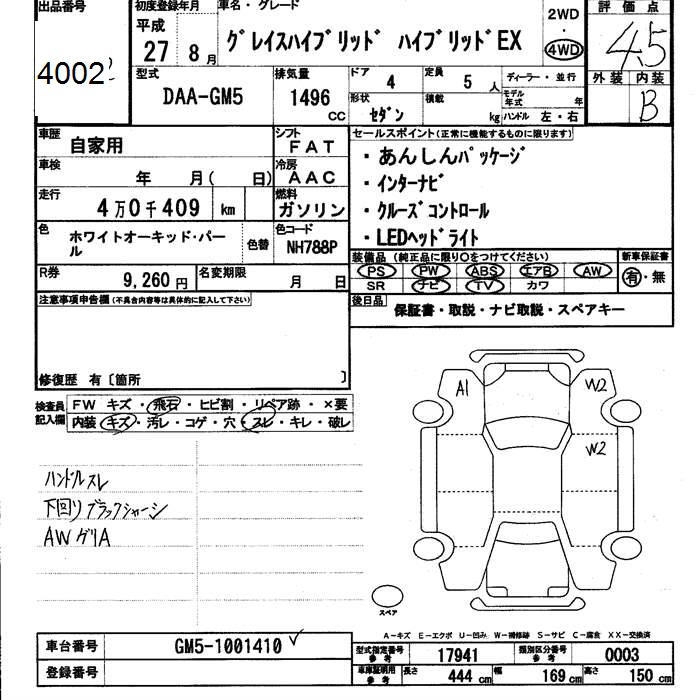 出品番号
4002
初度登録年月
平成
27 8 月
車名・グレード
グレイスハイブリッド ハイブリッドEX
2WD
・
4WD
評価点
4.5
外装 内装
B
型式
DAA-GM5
排気量
1496
CC
ドア
4
定員
5 人
ディーラー・並行
形状
セダン
積載
kg
モデル年式 年
ハンドル 左・右
車歴
自家用
シフト
FAT
車検
年 月( 日)
冷房
AAC
走行
4万0千409 km
燃料
ガソリン
色
ホワイトオーキッド・パール
色替
色コード
NH788P
R券
9,260円
名変期限
月 日
セールスポイント(正常に機能するものに限ります)
・あんしんパッケージ
・インターナビ
・クルーズコントロール
・LEDヘッドライト
装備品(純正品に限り○をつけてください)
PS PW ABS エアB AW
SR ナビ TV カワ
新車保証書
有・無
後日品
保証書・取説・ナビ取説・スペアキー
注意事項申告欄(不具合内容等は具体的に記入して下さい)
修復歴 有〔箇所 〕
検査員記入欄
FW キズ・飛石・ヒビ割・リペア跡・×要
内装 キズ・汚レ・コゲ・穴・スレ・キレ・破レ
ハンドルスレ
下回りブラックシャーシ
AWガリA
A1
W2
W2
スペア
A-キズ E-エクボ U-凹み W-補修跡 S-サビ C-腐食 XX-交換済
車台番号
GM5-1001410
登録番号
型式指定番号
参考
17941
類別区分番号
参考
0003
車庫証明用
参考
長さ
444 cm
幅
169 cm
高さ
150 cm